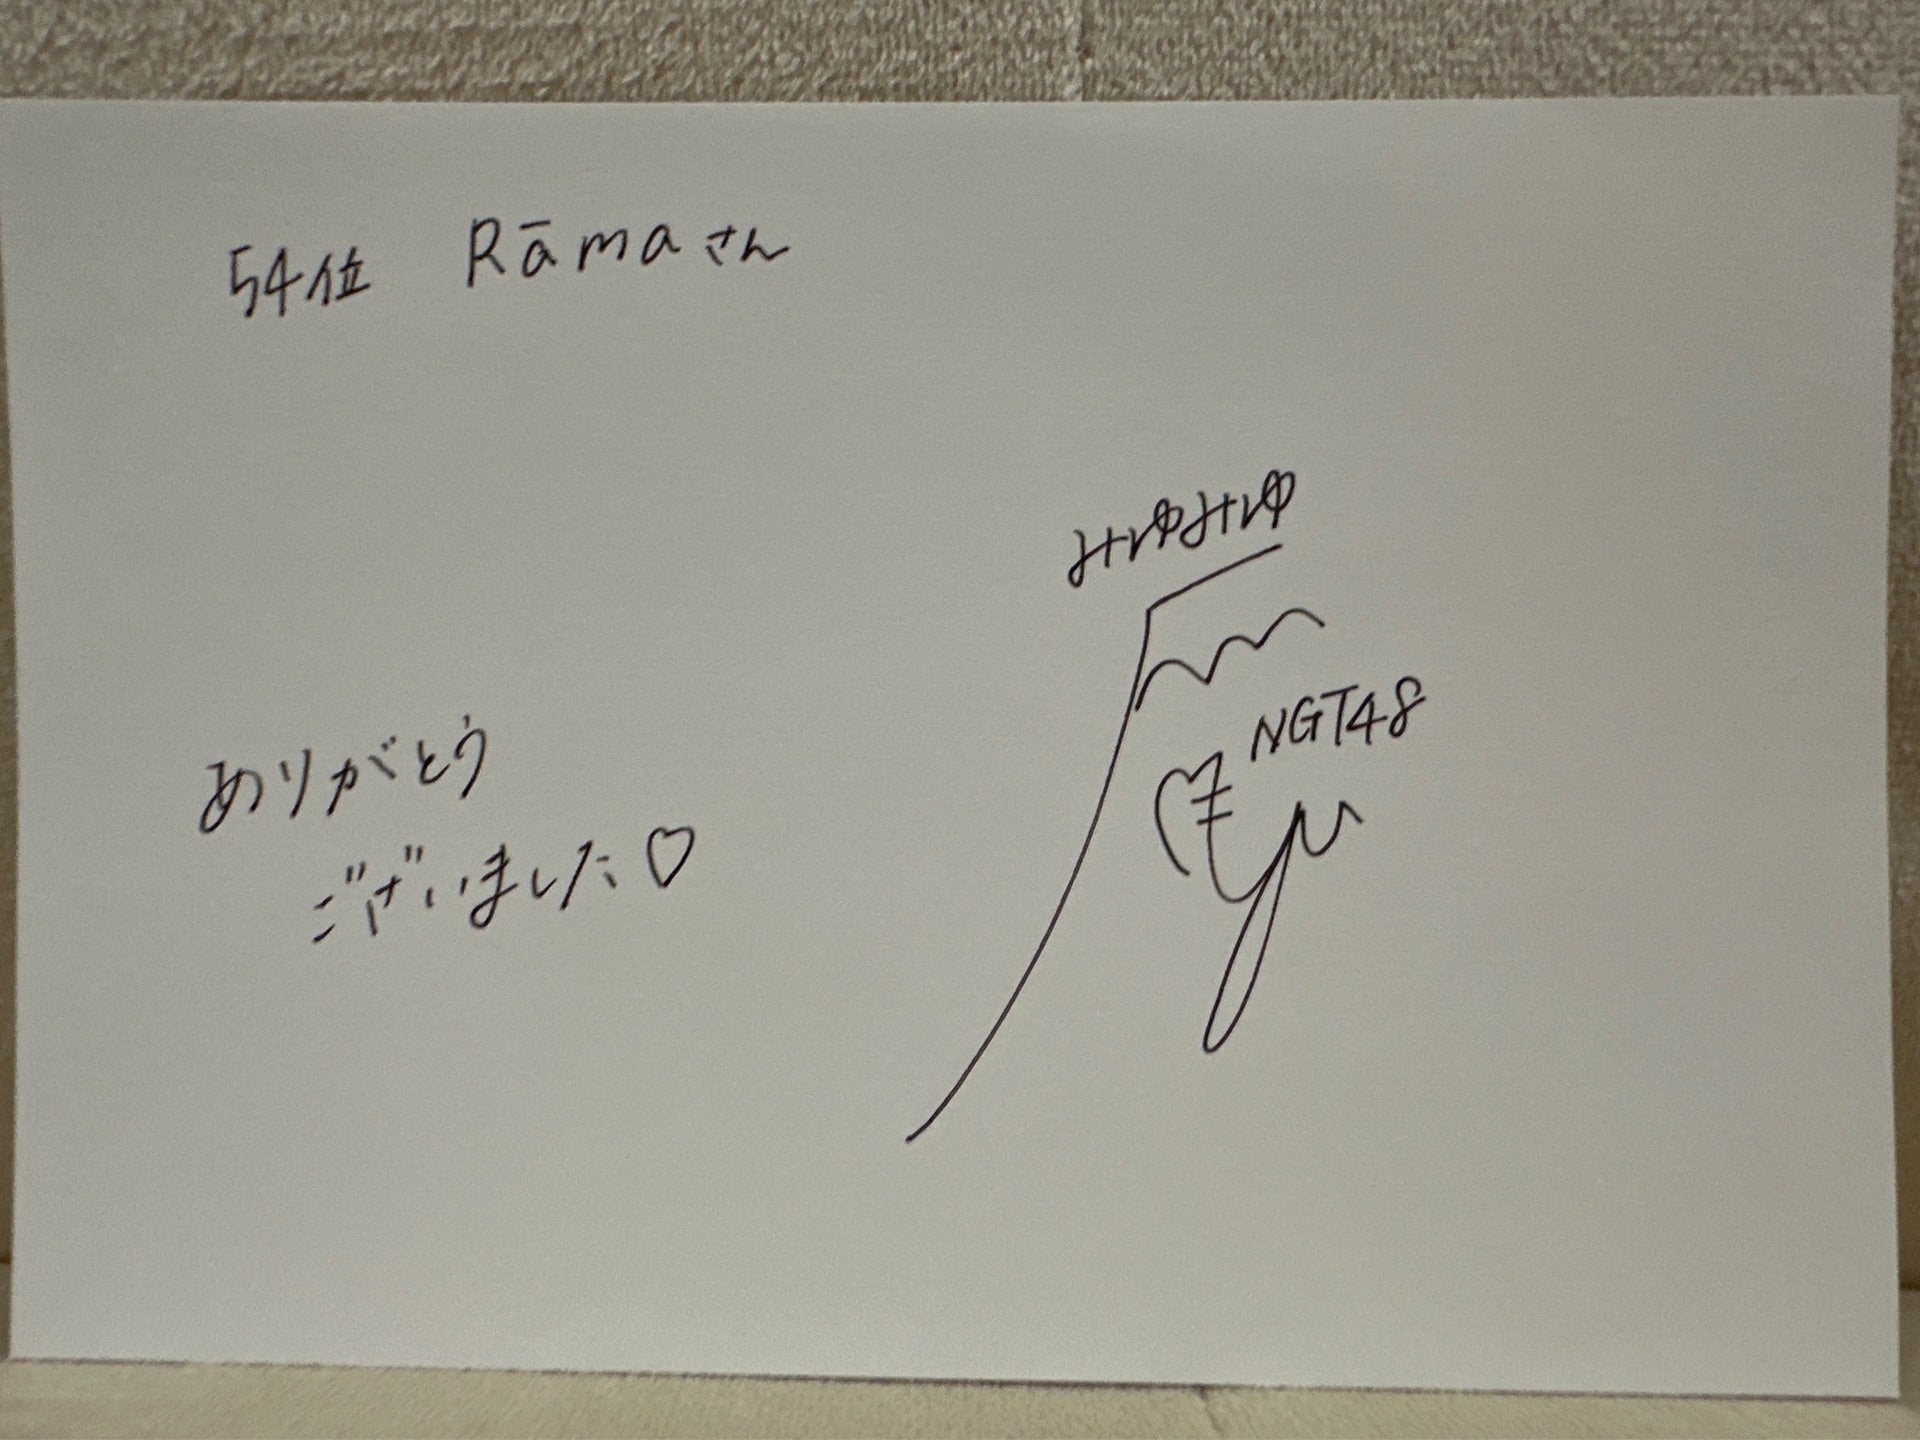 54位 Rāmaさん
みゆみゆ
NGT48
ありがとう
ございました♡